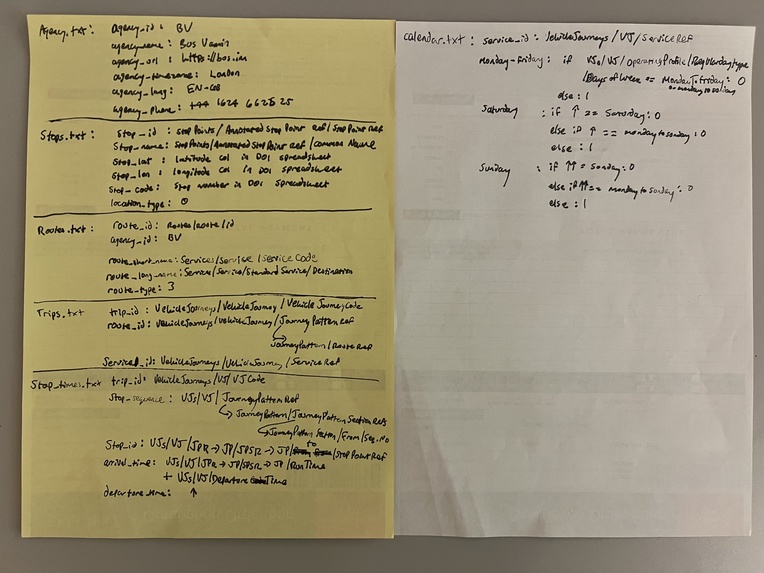 Agency.txt: agency_id: BV
agency_name: Bus Vannin
agency_url: https://bus.im
agency_timezone: London
agency_lang: EN-GB
agency_phone: +44 1624 662525
Stops.txt: Stop_id: StopPoints/Annotated Stop Point Ref/Stop Point Ref
Stop_name: StopPoints/Annotated Stop Point Ref/Common Name
Stop_lat: latitude col in DOI spreadsheet
Stop_lon: longitude col in DOI spreadsheet
Stop_code: Stop number in DOI spreadsheet
location_type: 0
Routes.txt: route_id: Routes/route/id
agency_id: BV
route_short_name: Services/Service/Service Code
route_long_name: Services/Service/Standard Service/Destination
route_type: 3
Trips.txt trip_id: VehicleJourneys/VehicleJourney/Vehicle JourneyCode
route_id: VehicleJourneys/VehicleJourney/JourneyPattern Ref
→ JourneyPattern/RouteRef
Service_id: VehicleJourneys/VehicleJourney/ServiceRef
Stop_times.txt trip_id: VehicleJourneys/VJ/VJCode
Stop_sequence: VJs/VJ/JourneyPattern Ref
→ JourneyPattern/JourneyPattern Section Refs
→ JourneyPattern Section/From/Seq. No
Stop_id: VJs/VJ/JPR → JP/JPSR → JP/to/Stop Point Ref
arrival_time: VJs/VJ/JPR → JP/JPSR → JP/RunTime
+ VJs/VJ/Departure Time
departure_time: ↑
calendar.txt: service_id: VehicleJourneys/VJ/ServiceRef
Monday-Friday: if VJs/VJ/OperatingProfile/RegularDayType
/Days of Week == MondayToFriday: 0
or monday to sunday
else: 1
Saturday: if ↑ == Saturday: 0
else if ↑ == monday to sunday: 0
else: 1
Sunday: if ↑↑ = Sunday: 0
else if ↑↑ == monday to sunday: 0
else: 1